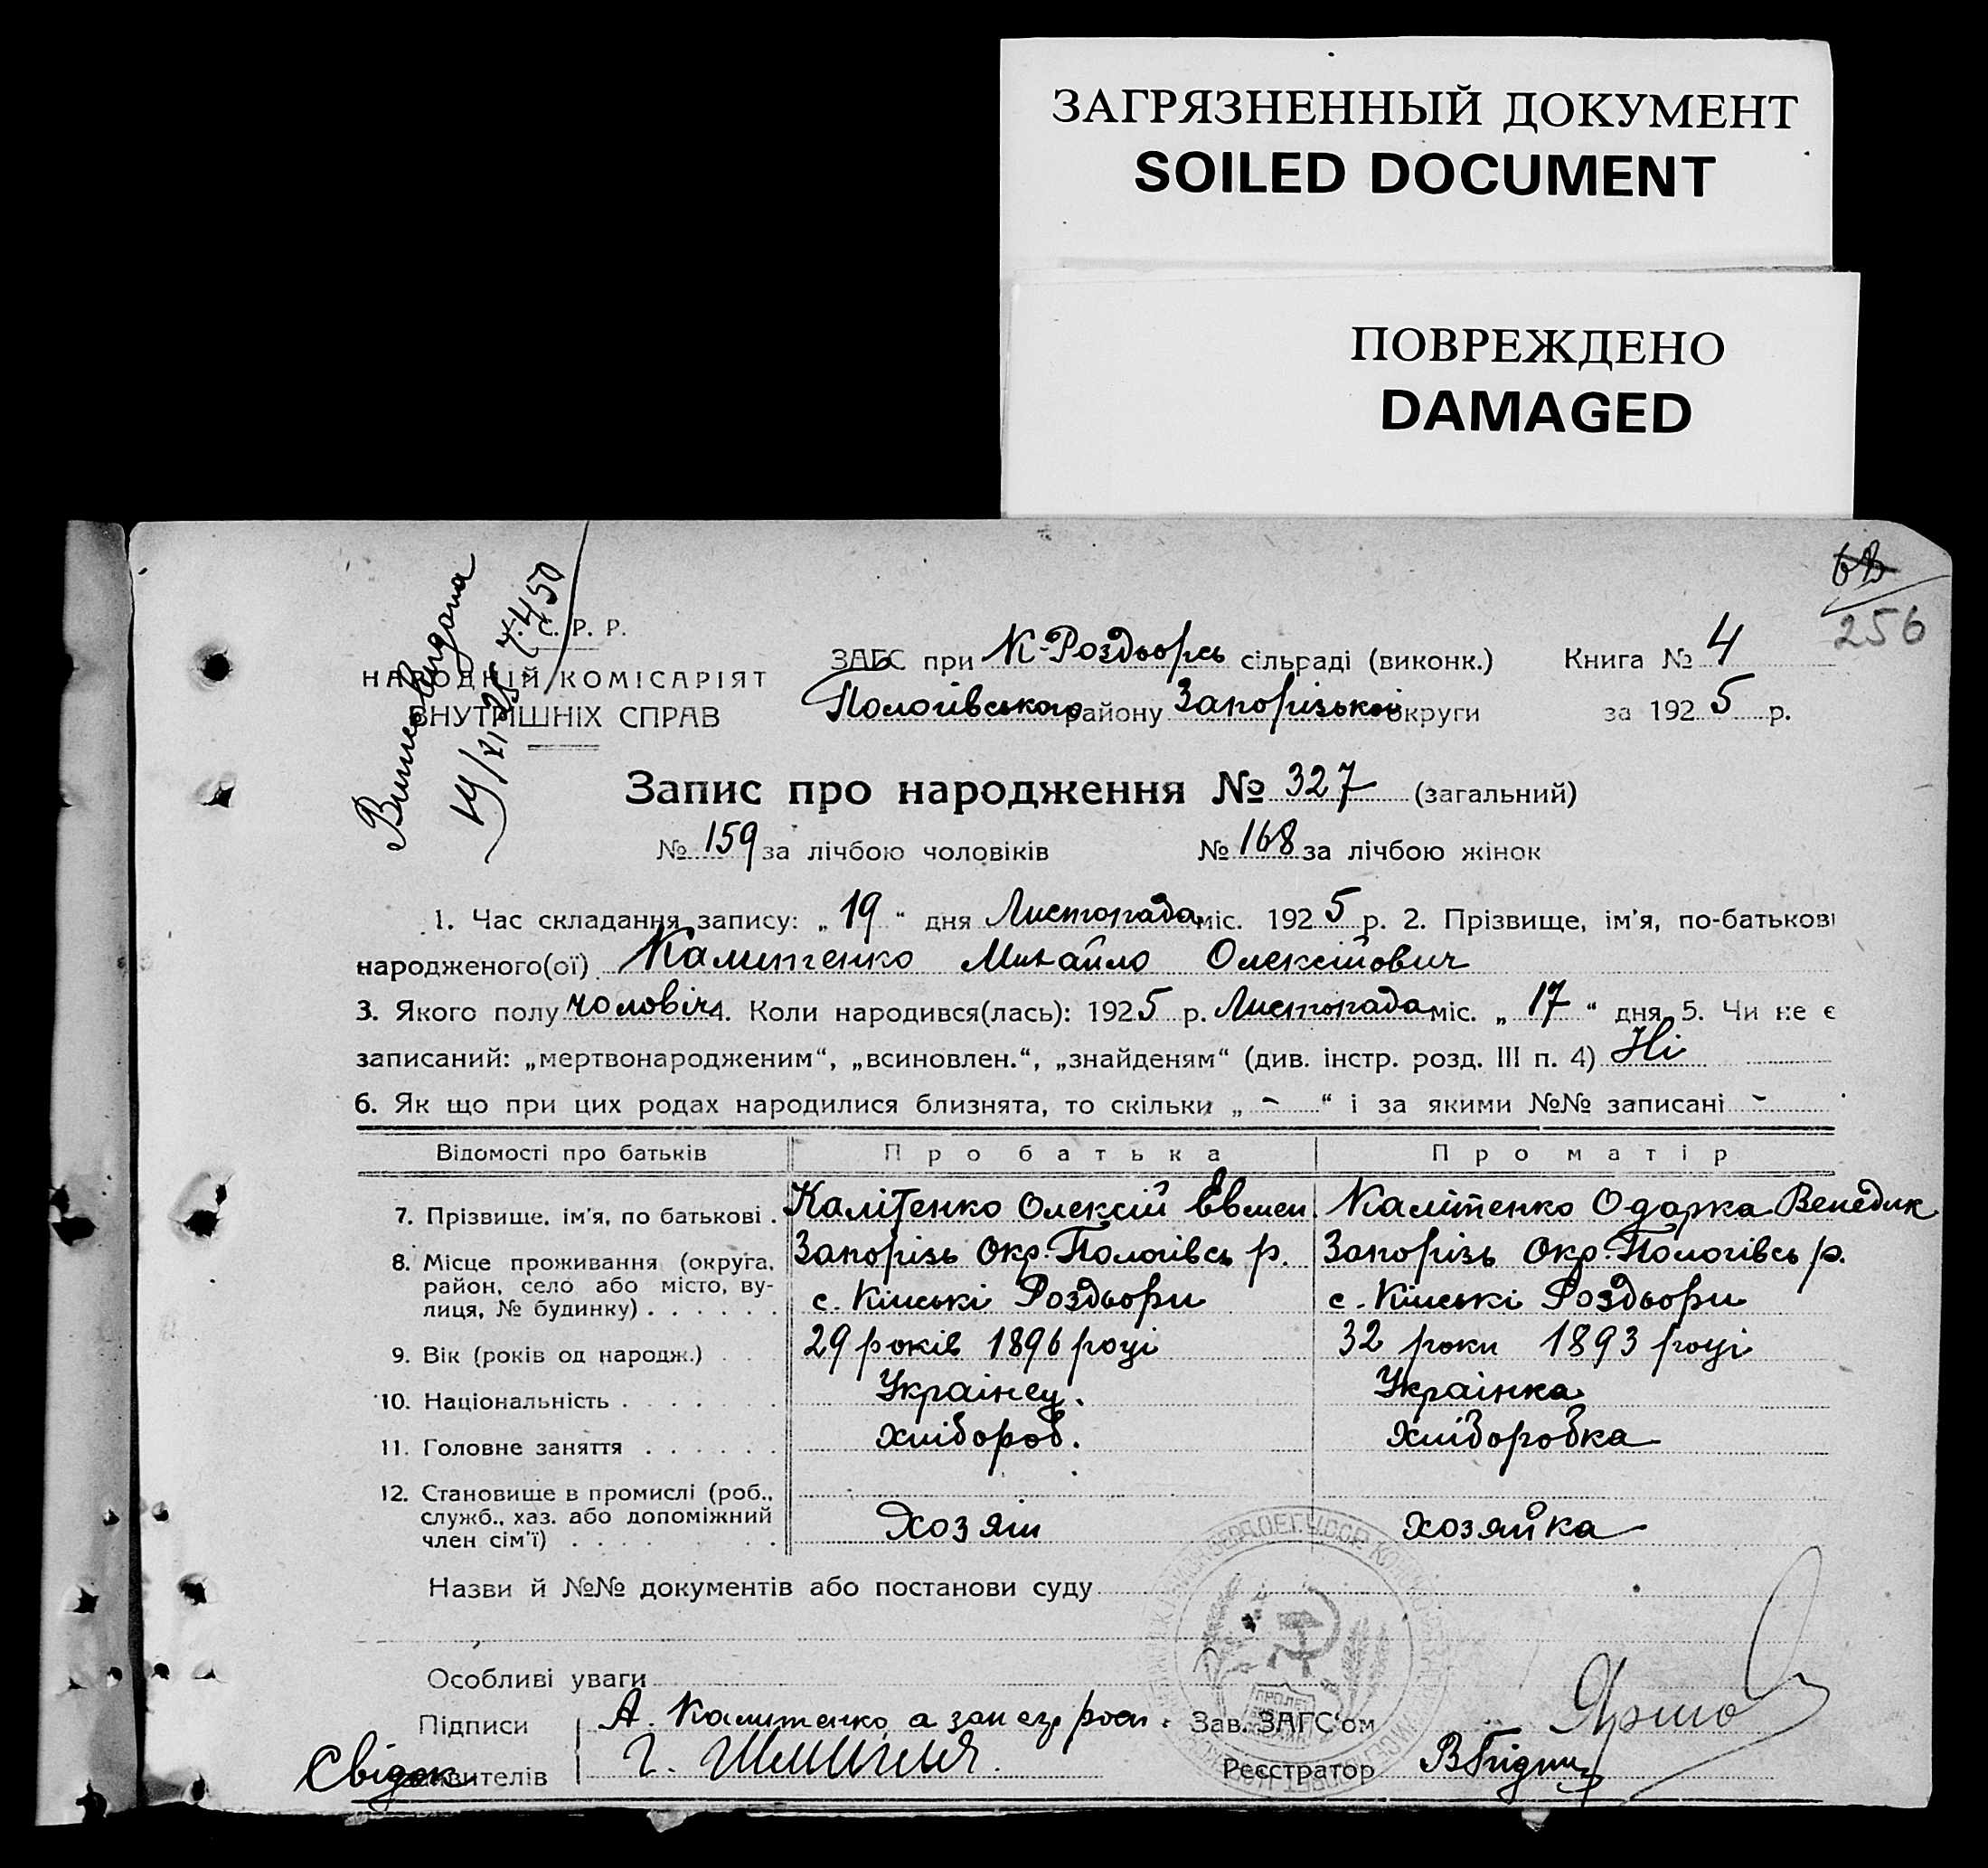 ЗАГРЯЗНЕННЫЙ ДОКУМЕНТ
SOILED DOCUMENT
ПОВРЕЖДЕНО
DAMAGED
256
С. Р. Р.
НАРОДНІЙ КОМІСАРІЯТ
ВНУТРІШНІХ СПРАВ
Випис видана
19/XI 25 450
ЗАГС при К-Роздворсь сільраді (виконк.) Книга № 4
Пологівського району Запорізької округи за 1925 р.
Запис про народження № 327 (загальний)
№ 159 за лічбою чоловіків № 168 за лічбою жінок
1. Час складання запису: „ 19 “ дня Листопада міс. 1925 р. 2. Прізвище, ім'я, по-батькові
народженого(ої) Калитенко Михайло Олексійович
3. Якого полу чоловіч 4. Коли народився(лась): 1925 р. Листопада міс. „ 17 “ дня 5. Чи не є
записаний: „мертвонародженим“, „всиновлен.“, „знайденям“ (див. інстр. розд. III п. 4) Ні
6. Як що при цих родах народилися близнята, то скільки „ - “ і за якими №№ записані -
Відомості про батьків Про батька Про матір
7. Прізвище, ім'я, по батькові . Калітенко Олексій Евмен Калітенко Одарка Венедик
8. Місце проживання (округа, Запорізь Окр. Пологівсь р. Запорізь Окр. Пологівсь р.
район, село або місто, ву-
лиця, № будинку) . . . . . . с. Кінські Роздвори с. Кінські Роздвори
9. Вік (років од народж.) . . 29 років 1896 році 32 роки 1893 році
10. Національність . . . . . . . Украінец. Украінка
11. Головне заняття . . . . . . хлібороб. хліборобка
12. Становище в промислі (роб.,
служб., хаз. або допоміжний Хозяін хозяйка
член сім'ї) . . . . . . .
Назви й №№ документів або постанови суду
Особливі уваги
Підписи А. Калитенко а за Зав. ЗАГС'ом
Свідок заявителів Г. Реєстратор